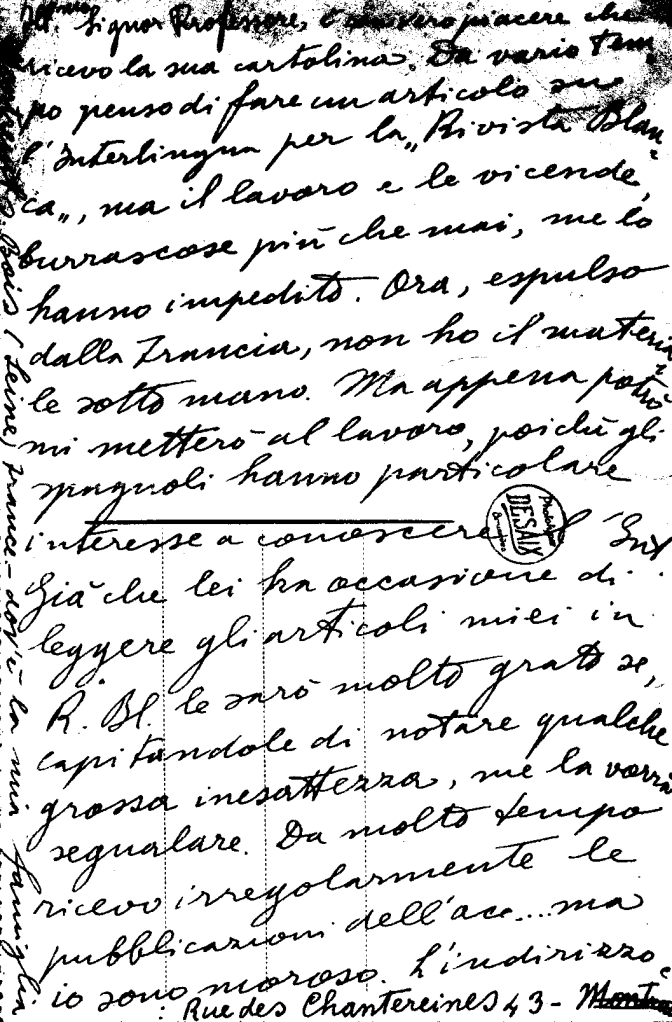 Ill. Signor Professore, è con vero piacere che
ricevo la sua cartolina. Da vario tem-
po penso di fare un articolo su
l'Interlingua per la „Rivista Blan-
ca„, ma il lavoro e le vicende,
burrascose più che mai, me lo
hanno impedito. Ora, espulso
dalla Francia, non ho il materia-
le sotto mano. Ma appena potrò
mi metterò al lavoro, poichè gli
spagnoli hanno particolare
interesse a conoscere l'Int.
Già che lei ha occasione di
leggere gli articoli miei in
R. Bl. le sarò molto grato se,
capitandole di notare qualche
grossa inesattezza, me la vorrà
segnalare. Da molto tempo
ricevo irregolarmente le
pubblicazioni dell'acc... ma
io sono moroso. L'indirizzo
: Rue des Chantereines 43 -
Bois (Seine, France - dov'è la mia famiglia
DESAIX